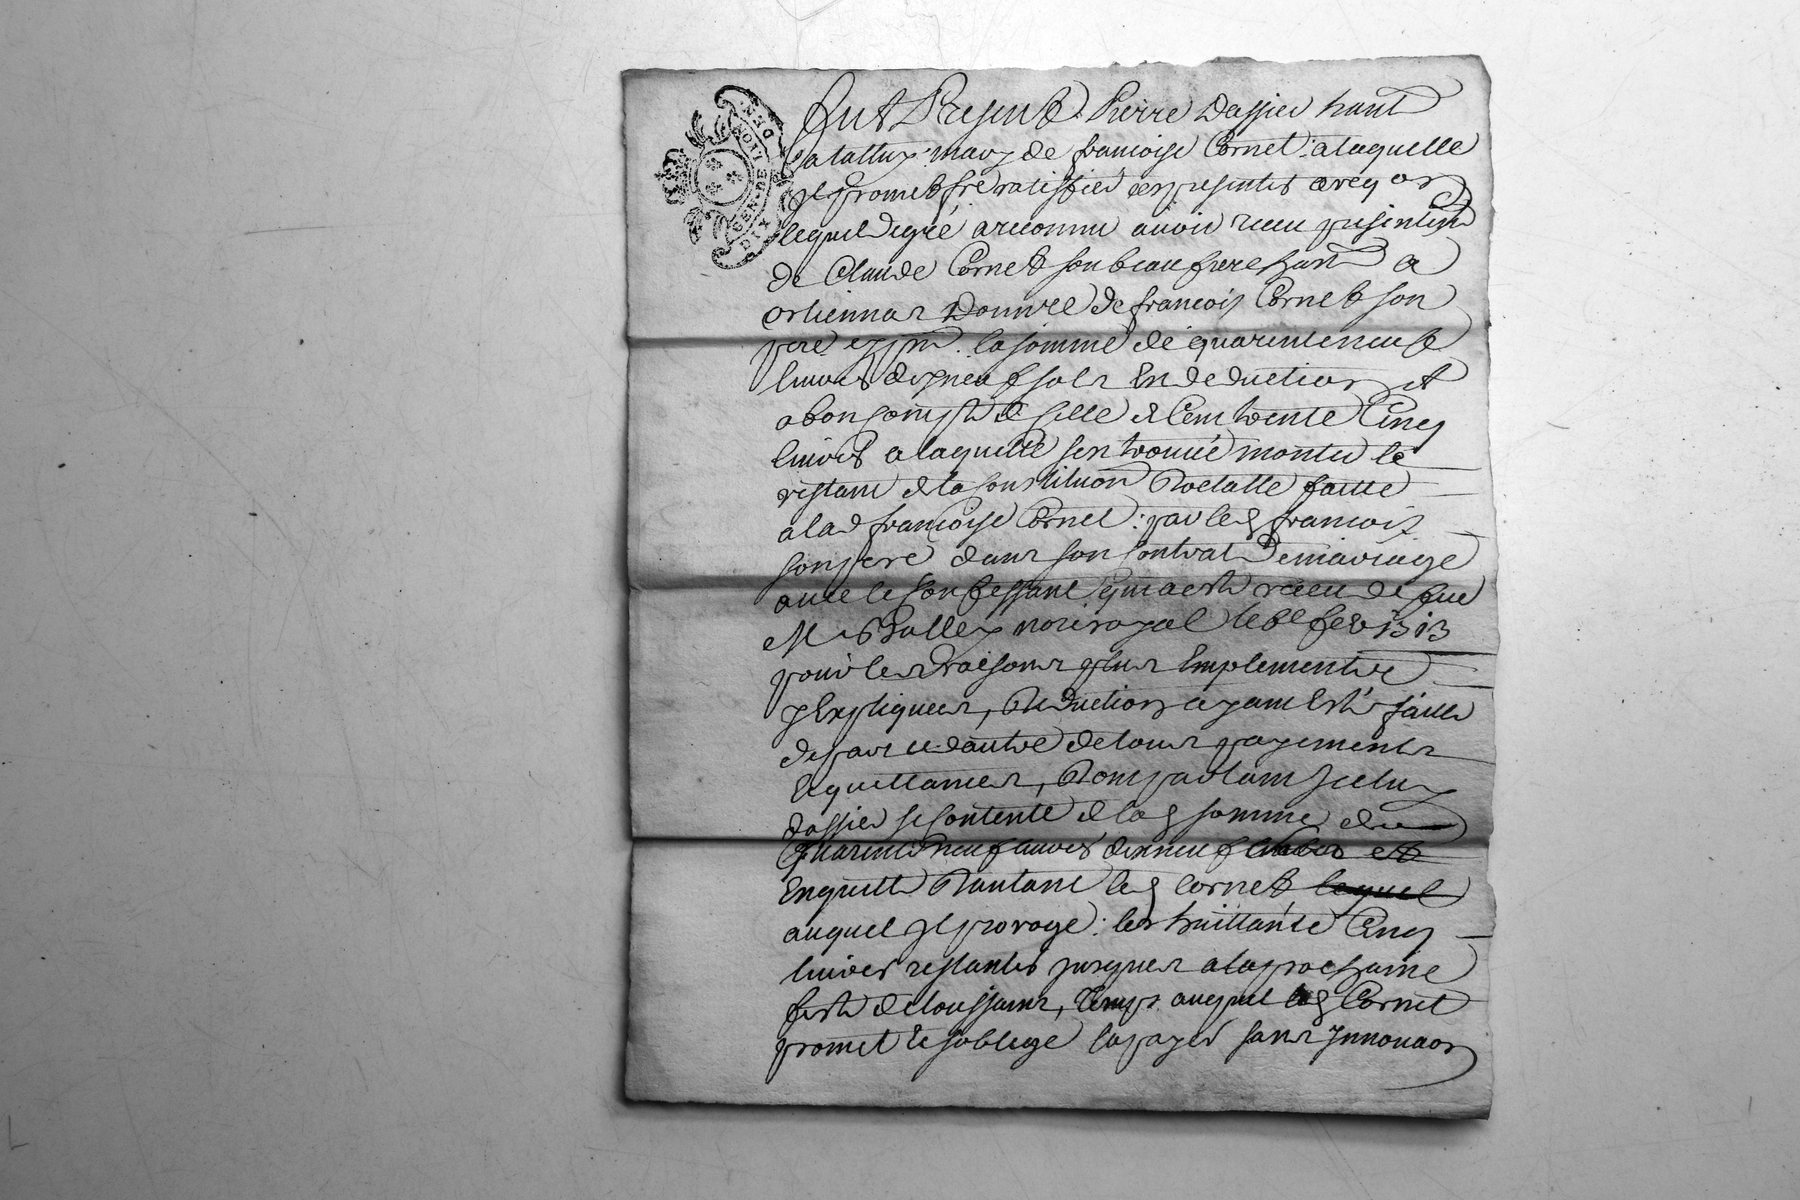 GEN. DE LYON
DIX DEN.
Fut Present Pierre Dassier hant
mary de francoise Cornet alaquelle
Il promet fre ratiffier presentes
lequel degré a reconnu avoir receu presentemt
de Claude Cornet son beau frere hant a
donnee de francois Cornet son
pere la somme de quarenteneuf
livres dixneuf sols En deduction et
abon compte de celle de Cent trente Cinq
livres alaquelle sest trouvé monter le
restant de la constituon dotalle faitte
alad francoise Cornet par led francois
son pere dans son contrat de mariage
avec le confessant qui a esté receu de feu
Me nore royal le febr 1313
pour les raisons plus Emplement
y Expliquees, deduction ayant Esté faitte
de part et dautre de tous payements
Et quittances, dont partant Icelluy
dassier se contente de lad somme de
Quarente neuf livres dixneuf
En quitte dautant led Cornet lequel
auquel Il proroge les huittante Cinq
livres restantes jusques ala prochaine
feste de toussaint, temps auquel led Cornet
promet et soblige la payer sans Innovaon